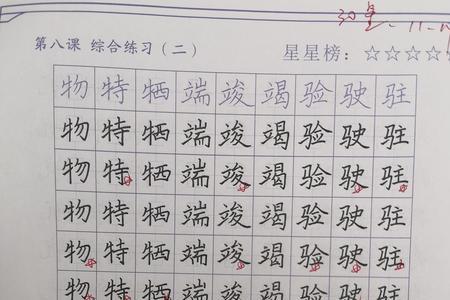 第八课 综合练习（二） 星星榜：☆☆☆☆
物特牺端竣竭验驶驻
物特牺端竣竭验驶驻
物特牺端竣竭验驶驻
物特牺端竣竭验驶驻
物特牺端竣竭验驶驻
物特牺端竣竭验驶驻